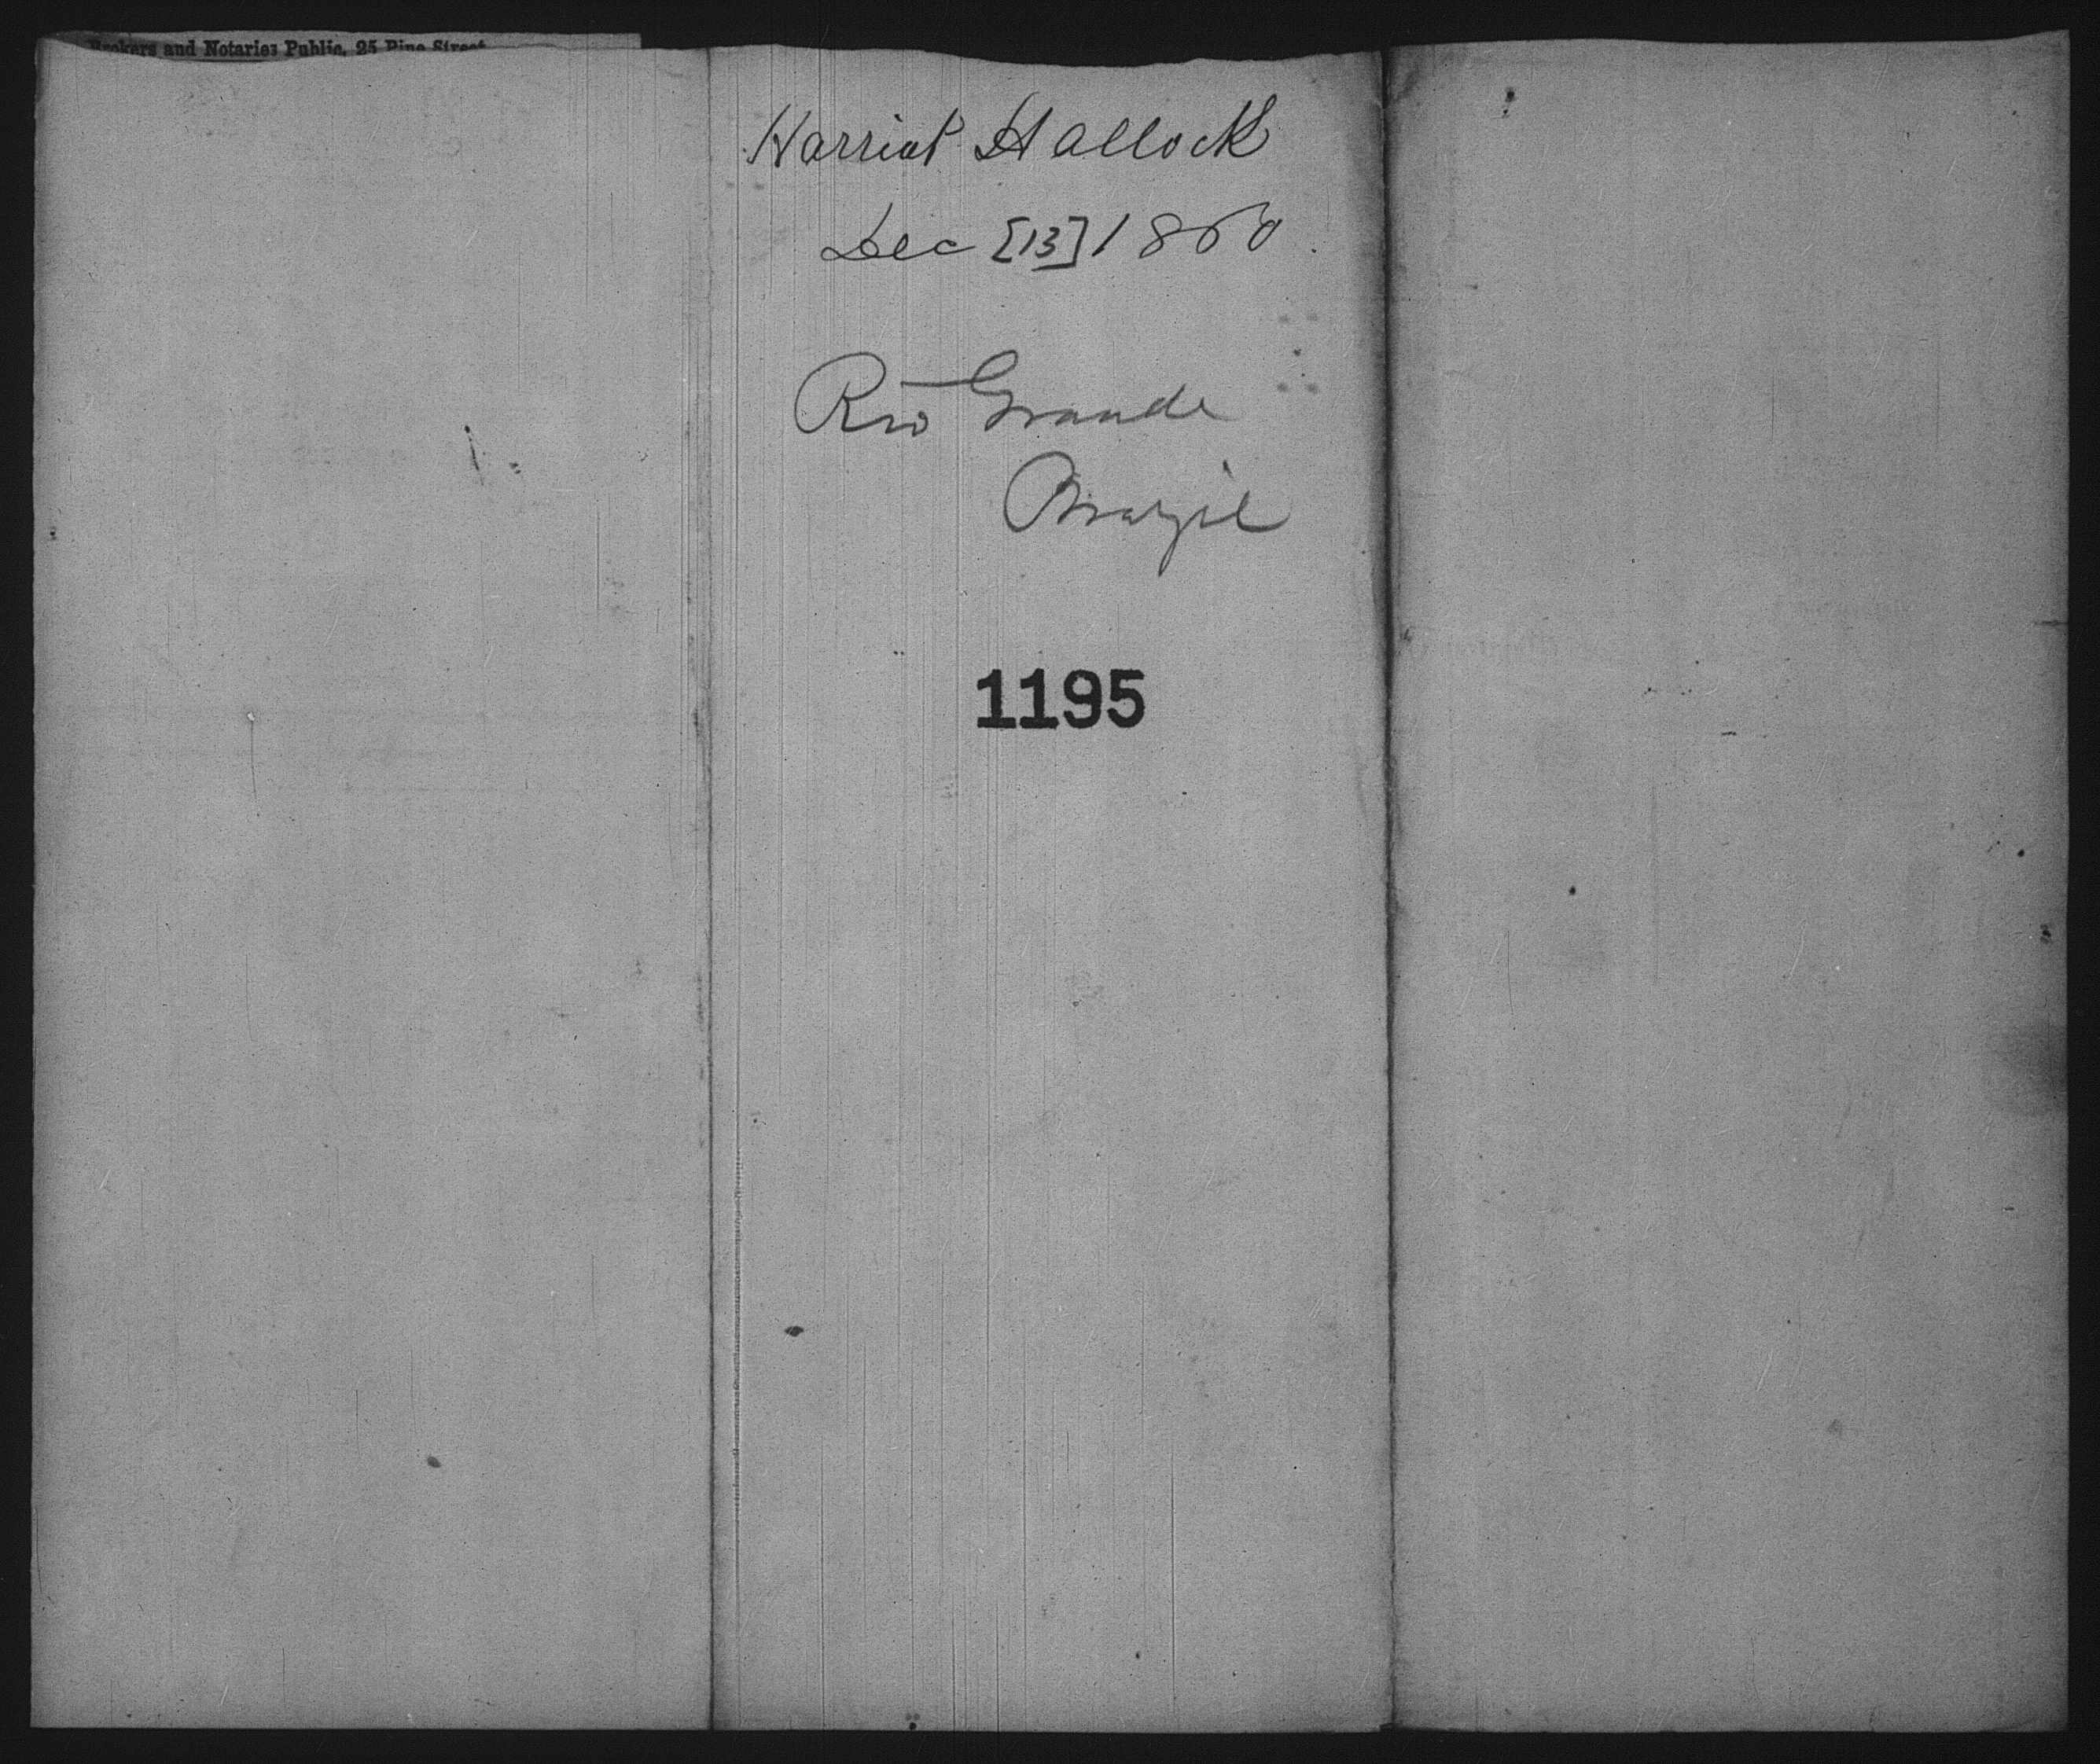 Brokers and Notaries Public, 25 Pine Street
Harriat Hallock
Dec [13] 1860
Rio Grande
Brazil
1195